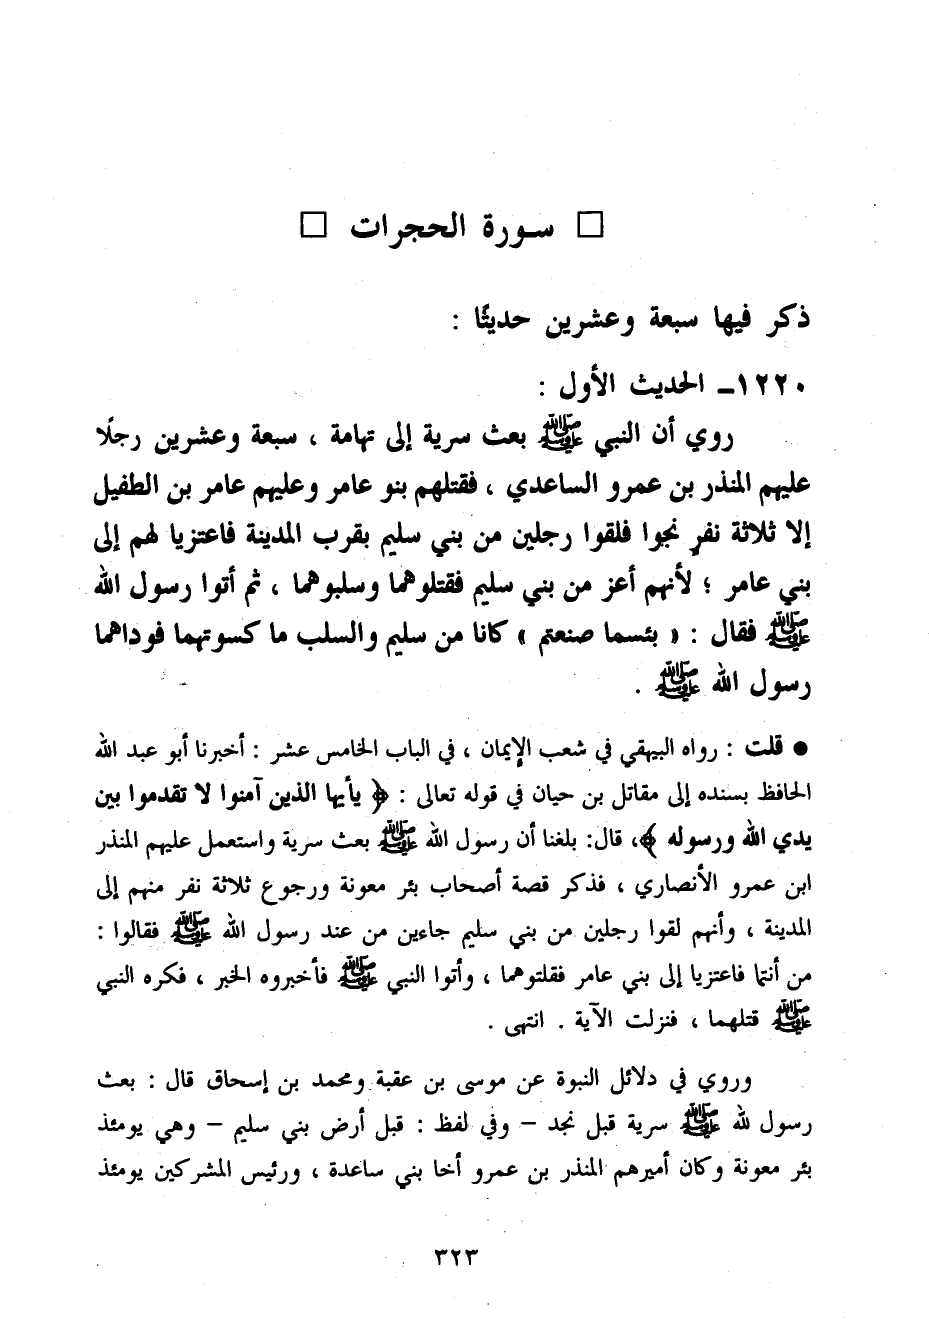 □ سورة الحجرات □
ذكر فيها سبعة وعشرين حديثًا :
١٢٢٠ـ الحديث الأول :
روي أن النبي ﷺ بعث سرية إلى تهامة ، سبعة وعشرين رجلًا
عليهم المنذر بن عمرو الساعدي ، فقتلهم بنو عامر وعليهم عامر بن الطفيل
إلا ثلاثة نفرٍ نجوا فلقوا رجلين من بني سليم بقرب المدينة فاعتزيا لهم إلى
بني عامر ؛ لأنهم أعز من بني سليم فقتلوهما وسلبوهما ، ثم أتوا رسول الله
ﷺ فقال : « بئسما صنعتم » كانا من سليم والسلب ما كسوتهما فوداهما
رسول الله ﷺ .
● قلت : رواه البيهقي في شعب الإيمان ، في الباب الخامس عشر : أخبرنا أبو عبد الله
الحافظ بسنده إلى مقاتل بن حيان في قوله تعالى : ﴿ يأيها الذين آمنوا لا تقدموا بين
يدي الله ورسوله ﴾، قال: بلغنا أن رسول الله ﷺ بعث سرية واستعمل عليهم المنذر
ابن عمرو الأنصاري ، فذكر قصة أصحاب بئر معونة ورجوع ثلاثة نفر منهم إلى
المدينة ، وأنهم لقوا رجلين من بني سليم جاءين من عند رسول الله ﷺ فقالوا :
من أنتما فاعتزيا إلى بني عامر فقلتوهما ، وأتوا النبي ﷺ فأخبروه الخبر ، فكره النبي
ﷺ قتلهما ، فنزلت الآية . انتهى .
وروي في دلائل النبوة عن موسى بن عقبة ومحمد بن إسحاق قال : بعث
رسول لله ﷺ سرية قبل نجد – وفي لفظ : قبل أرض بني سليم – وهي يومئذ
بئر معونة وكان أميرهم المنذر بن عمرو أخا بني ساعدة ، ورئيس المشركين يومئذ
٣٢٣